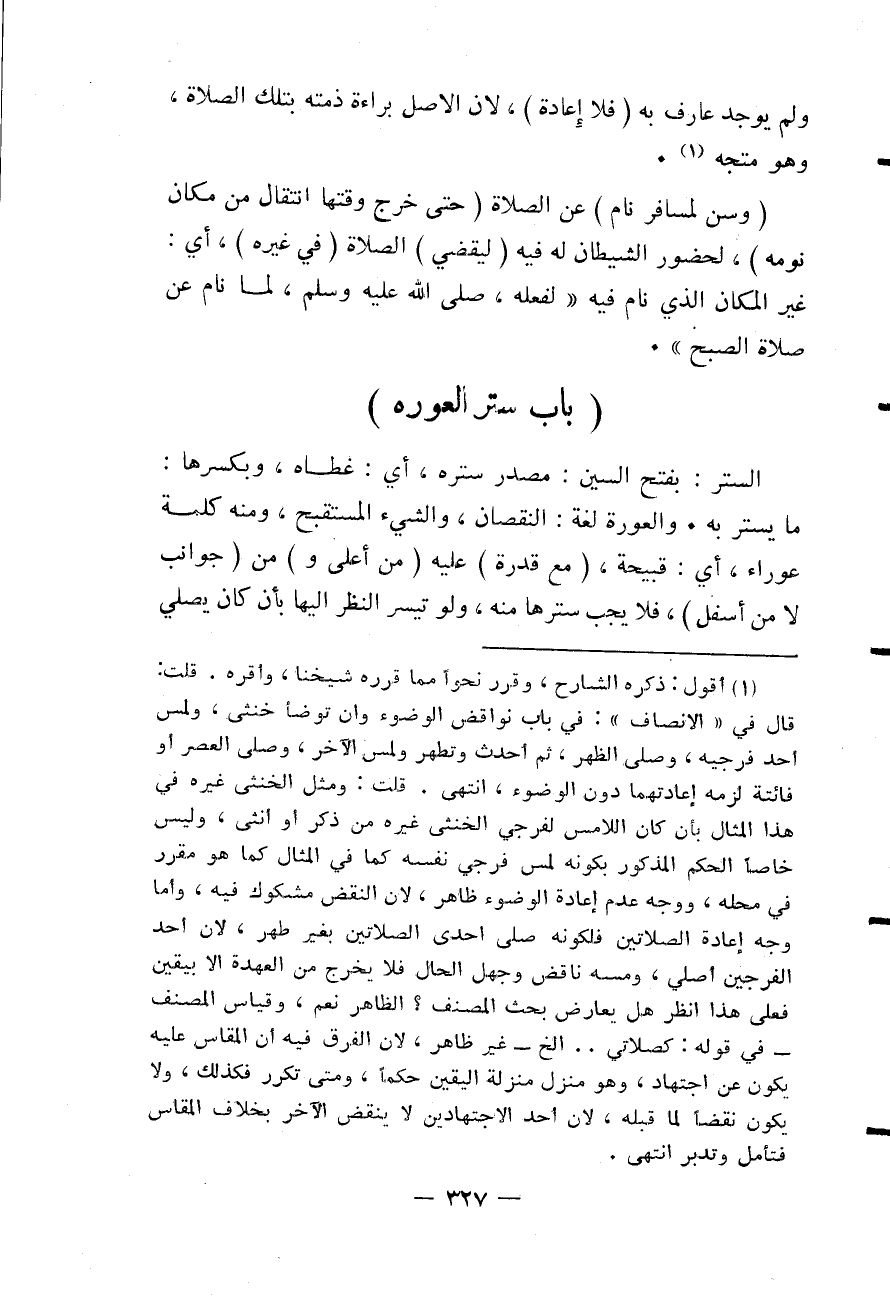 ولم يوجد عارف به ( فلا إعادة ) ، لان الاصل براءة ذمته بتلك الصلاة ،
وهو متجه (١) ٠
( وسن لمسافر نام ) عن الصلاة ( حتى خرج وقتها انتقال من مكان
نومه ) ، لحضور الشيطان له فيه ( ليقضي ) الصلاة ( في غيره ) ، أي :
غير المكان الذي نام فيه « لفعله ، صلى الله عليه وسلم ، لمـا نام عن
صلاة الصبح » ٠
( باب ستر العوره )
الستر : بفتح السين : مصدر ستره ، أي : غطـاه ، وبكسرها :
ما يستر به ٠ والعورة لغة : النقصان ، والشيء المستقبح ، ومنه كلمـة
عوراء ، أي : قبيحة ، ( مع قدرة ) عليه ( من أعلى و ) من ( جوانب
لا من أسفل ) ، فلا يجب سترها منه ، ولو تيسر النظر اليها بأن كان يصلي
(١) أقول : ذكره الشارح ، وقرر نحواً مما قرره شيخنا ، وأقره . قلت :
قال في « الانصاف » : في باب نواقض الوضوء وان توضأ خنثى ، ولمس
أحد فرجيه ، وصلى الظهر ، ثم أحدث وتطهر ولمس الآخر ، وصلى العصر أو
فائتة لزمه إعادتهما دون الوضوء ، انتهى . قلت : ومثل الخنثى غيره في
هذا المثال بأن كان اللامس لفرجي الخنثى غيره من ذكر أو أنثى ، وليس
خاصاً الحكم المذكور بكونه لمس فرجي نفسه كما في المثال كما هو مقرر
في محله ، ووجه عدم إعادة الوضوء ظاهر ، لان النقض مشكوك فيه ، وأما
وجه إعادة الصلاتين فلكونه صلى احدى الصلاتين بغير طهر ، لان أحد
الفرجين أصلي ، ومسه ناقض وجهل الحال فلا يخرج من العهدة الا بيقين
فعلى هذا انظر هل يعارض بحث المصنف ؟ الظاهر نعم ، وقياس المصنف
ـ في قوله : كصلاتي .. الخ ـ غير ظاهر ، لان الفرق فيه أن المقاس عليه
يكون عن اجتهاد ، وهو منزل منزلة اليقين حكماً ، ومتى تكرر فكذلك ، ولا
يكون نقضاً لما قبله ، لان أحد الاجتهادين لا ينقض الآخر بخلاف المقاس
فتأمل وتدبر انتهى .
— ٣٢٧ —